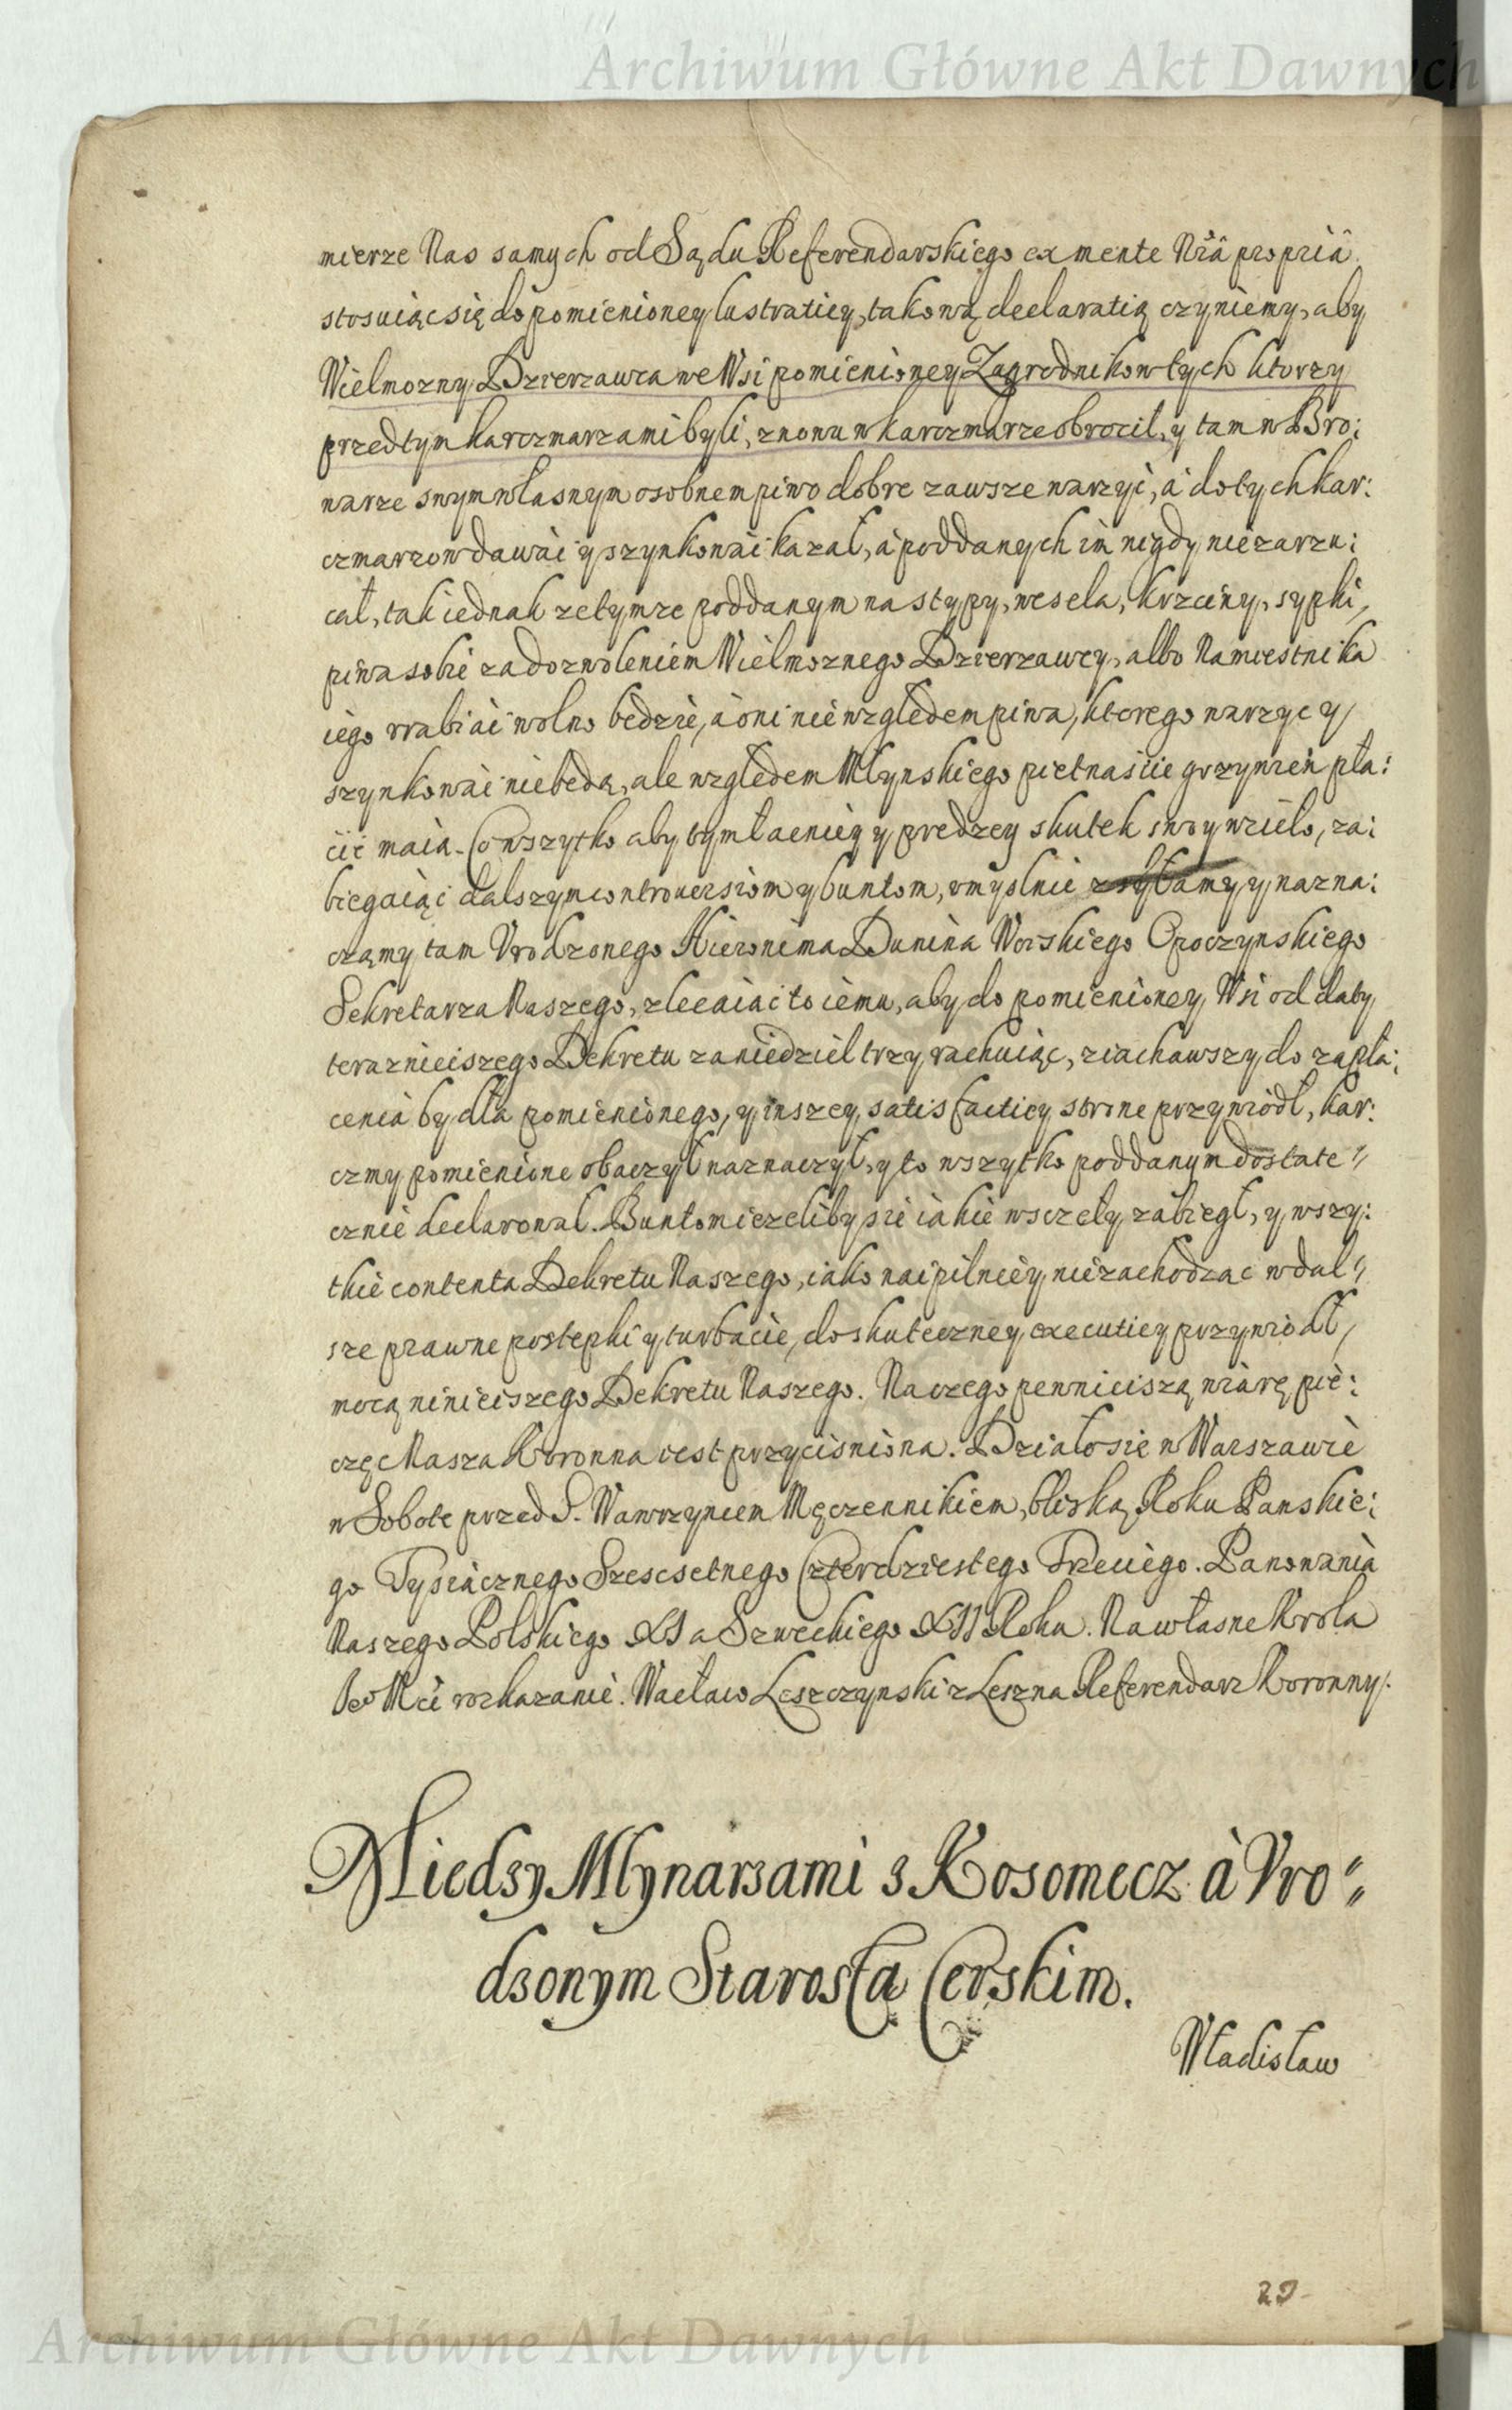 Archiwum Główne Akt Dawnych
mierze Nas samych od Sądu Referendarskiego ex mente Nrâ propriâ
stosuiąc się do pomienioney lustratiey, takową declaratią czyniemy, aby
Wielmozny Dzierzawca we Wsi pomienioney Zagrodnikow tych ktorzy
przedtym karczmarzami byli, znowu w karczmarze obrocil, y tam w Bro:
warze swym własnym osobnem piwo dobre zawsze warzyć, à do tych kar:
czmarzow dawać y szynkować kazał, à poddanych im nigdy nie zarzu:
cał, tak iednak ze tymze poddanym na stypy, wesela, krzciny, sypki,
piwa sobie za dozwoleniem Wielmoznego Dzierzawcy, albo Namiestnika
iego rrabiać wolno będzie, à oni nie względem piwa, ktorego warzyć y
szynkować niebędą, ale względem Młynskiego pietnaście grzywien pła:
cić maią. Co wszytko aby tym łacniey y prędzey skutek swoy wzieło, za:
biegaiąc dalszym controuersiom y buntom, vmyslnie zsyłamy y nazna:
czamy tam Vrodzonego Hieronima Dunina Worskiego Opoczynskiego
Sekretarza Naszego, zlecaiąc to iemu, aby do pomienioney Wsi od daty
teraznieiszego Dekretu za niedziel trzy rachuiąc, ziachawszy do zapła:
cenia bydła pomienionego, y inszey satisfactiey strone przywiodł, kar:
czmy pomienione obaczył naznaczył, y to wszytko poddanym dostate"
cznie declarował. Buntom iezeliby się iakie wsczęły zabiegł, y wszy:
tkie contenta Dekretu Naszego, iako naipilniey niezachodząc w dal"
sze prawne postępki y turbacie, do skuteczney executiey przywiodł,
mocą ninieiszego Dekretu Naszego. Na czego pewnieiszą wiarę pie:
częć Nasza Koronna iest przyciśniona. Działo się w Warszawie
w Sobotę przed S. Wawrzyncem Męczennikiem, bliską Roku Panskie:
go Tysiącznego Szescsetnego Czterdziestego Trzeciego. Panowania
Naszego Polskiego XI a Szweckiego XII Roku. Na własne Krola
Je° Mci rozkazanie. Wacław Leszczynski z Leszna Referendarz Koronny.
Miedzy Mlynarzami z Kosomecz à Vro"
dzonym Starostą Cerskim.
Władisław
29
Archiwum Główne Akt Dawnych